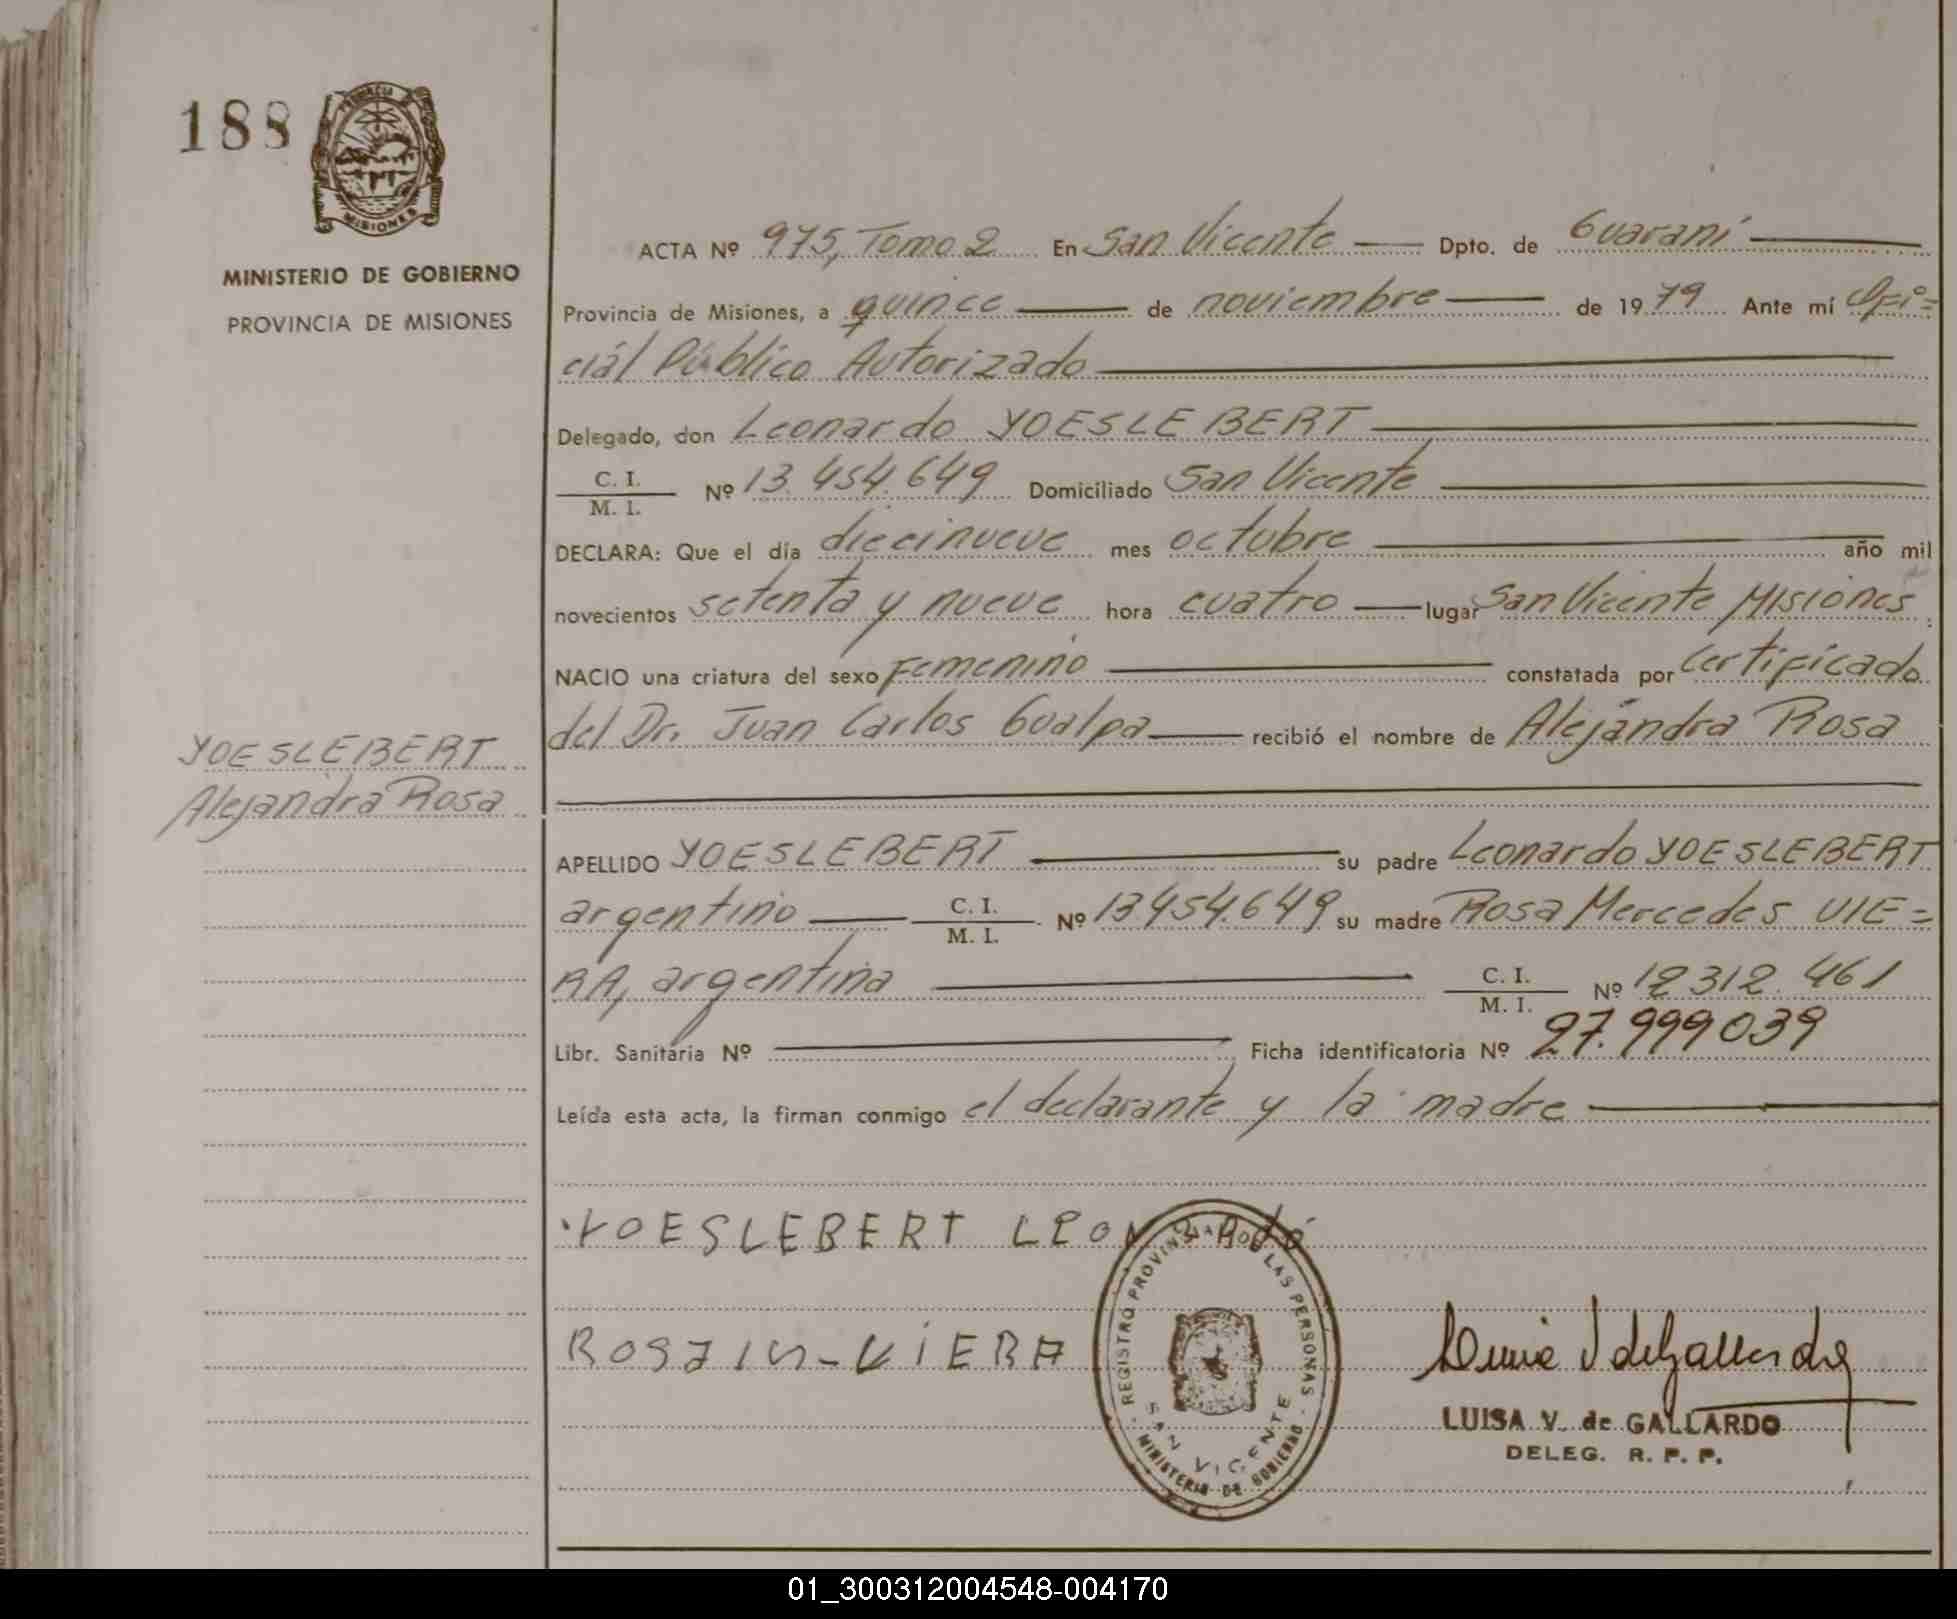 188
PROVINCIA DE
MISIONES
MINISTERIO DE GOBIERNO
PROVINCIA DE MISIONES
ACTA Nº 975, Tomo 2 En San Vicente Dpto. de Guaraní
Provincia de Misiones, a quince de noviembre de 1979 Ante mí Ofi=
ciál Público Autorizado
Delegado, don Leonardo YOESLEBERT
C. I.
M. I. Nº 13.454.649 Domiciliado San Vicente
DECLARA: Que el día diecinueve mes octubre año mil
novecientos setenta y nueve hora cuatro lugar San Vicente Misiones
NACIO una criatura del sexo Femenino constatada por Certificado
del Dr. Juan Carlos Gualpa recibió el nombre de Alejandra Rosa
YOESLEBERT
Alejandra Rosa
APELLIDO YOESLEBERT su padre Leonardo YOESLEBERT
argentino C. I. M. I. Nº 13.454.649 su madre Rosa Mercedes VIE=
RA, argentina C. I. M. I. Nº 12.312.461
Libr. Sanitaria Nº Ficha identificatoria Nº 27.999.039
Leída esta acta, la firman conmigo el declarante y la madre
YOESLEBERT LEONARdo
ROSA M-VIERA
REGISTRO PROVINCIAL DE LAS PERSONAS
SAN VICENTE
MINISTERIO DE GOBIERNO
Luisa V de Gallardo
LUISA V. de GALLARDO
DELEG. R. P. P.
01_300312004548-004170